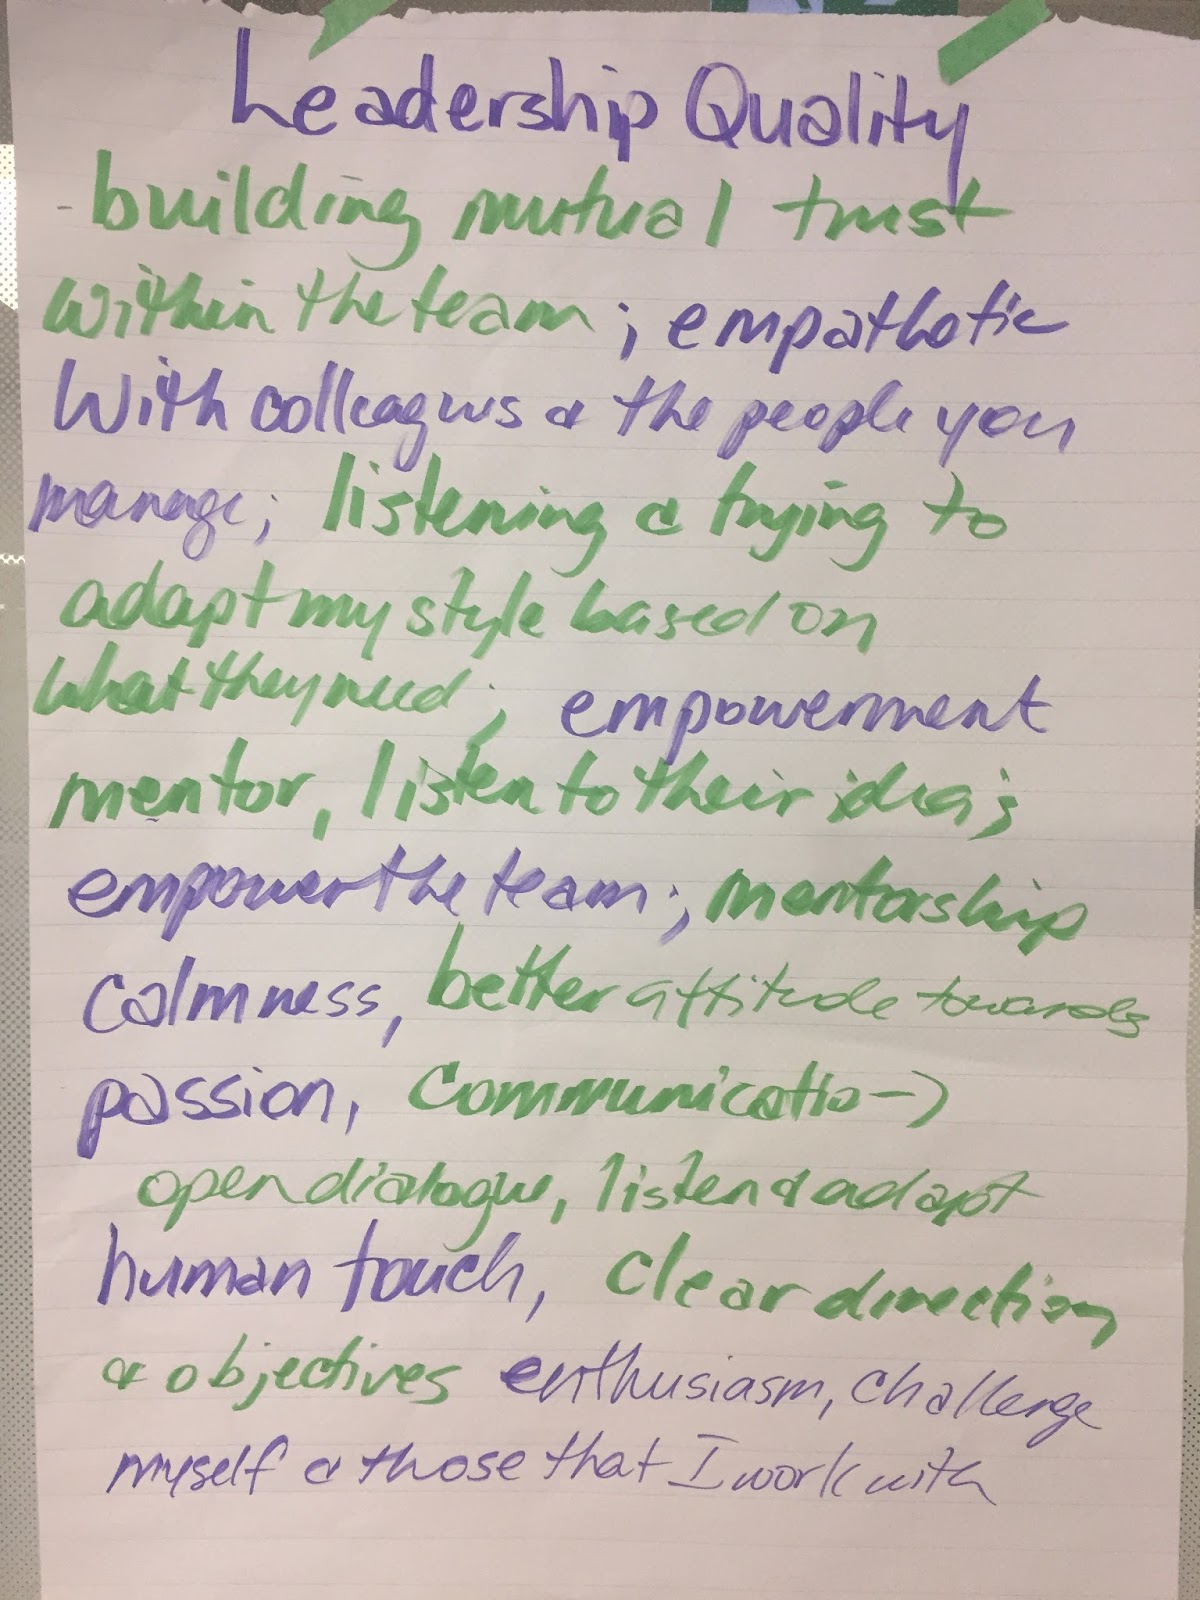 Leadership Quality
- building mutual trust
within the team; empathetic
With colleagues & the people you
manage; listening & trying to
adapt my style based on
what they need; empowerment
mentor, listen to their ideas;
empower the team; mentorship
calmness, better attitude towards
passion, communication
open dialogue, listen & adapt
human touch, clear direction
& objectives enthusiasm, challenge
myself & those that I work with